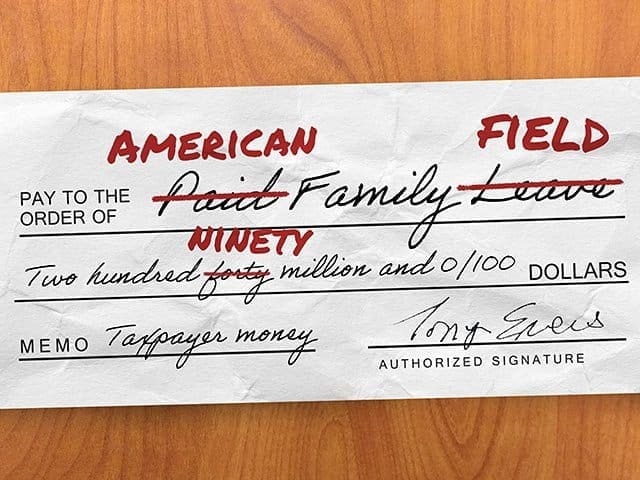 AMERICAN FIELD
PAY TO THE ORDER OF Paid Family Leave
NINETY
Two hundred forty million and 0/100 DOLLARS
MEMO Taxpayer money Tony Evers
AUTHORIZED SIGNATURE